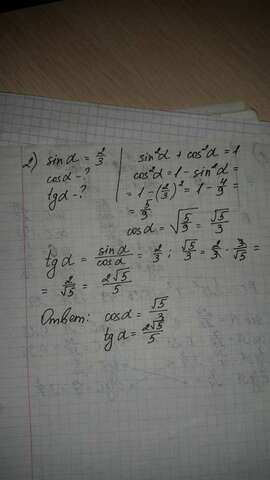 2) sin α = 2/3
cos α - ?
tg α - ?
sin²α + cos²α = 1
cos²α = 1 - sin²α =
= 1 - (2/3)² = 1 - 4/9 =
= 5/9
cos α = √(5/9) = √5/3
tg α = sin α/cos α = 2/3 : √5/3 = 2/3 · 3/√5 =
= 2/√5 = 2√5/5
Ответ: cos α = √5/3
tg α = 2√5/5